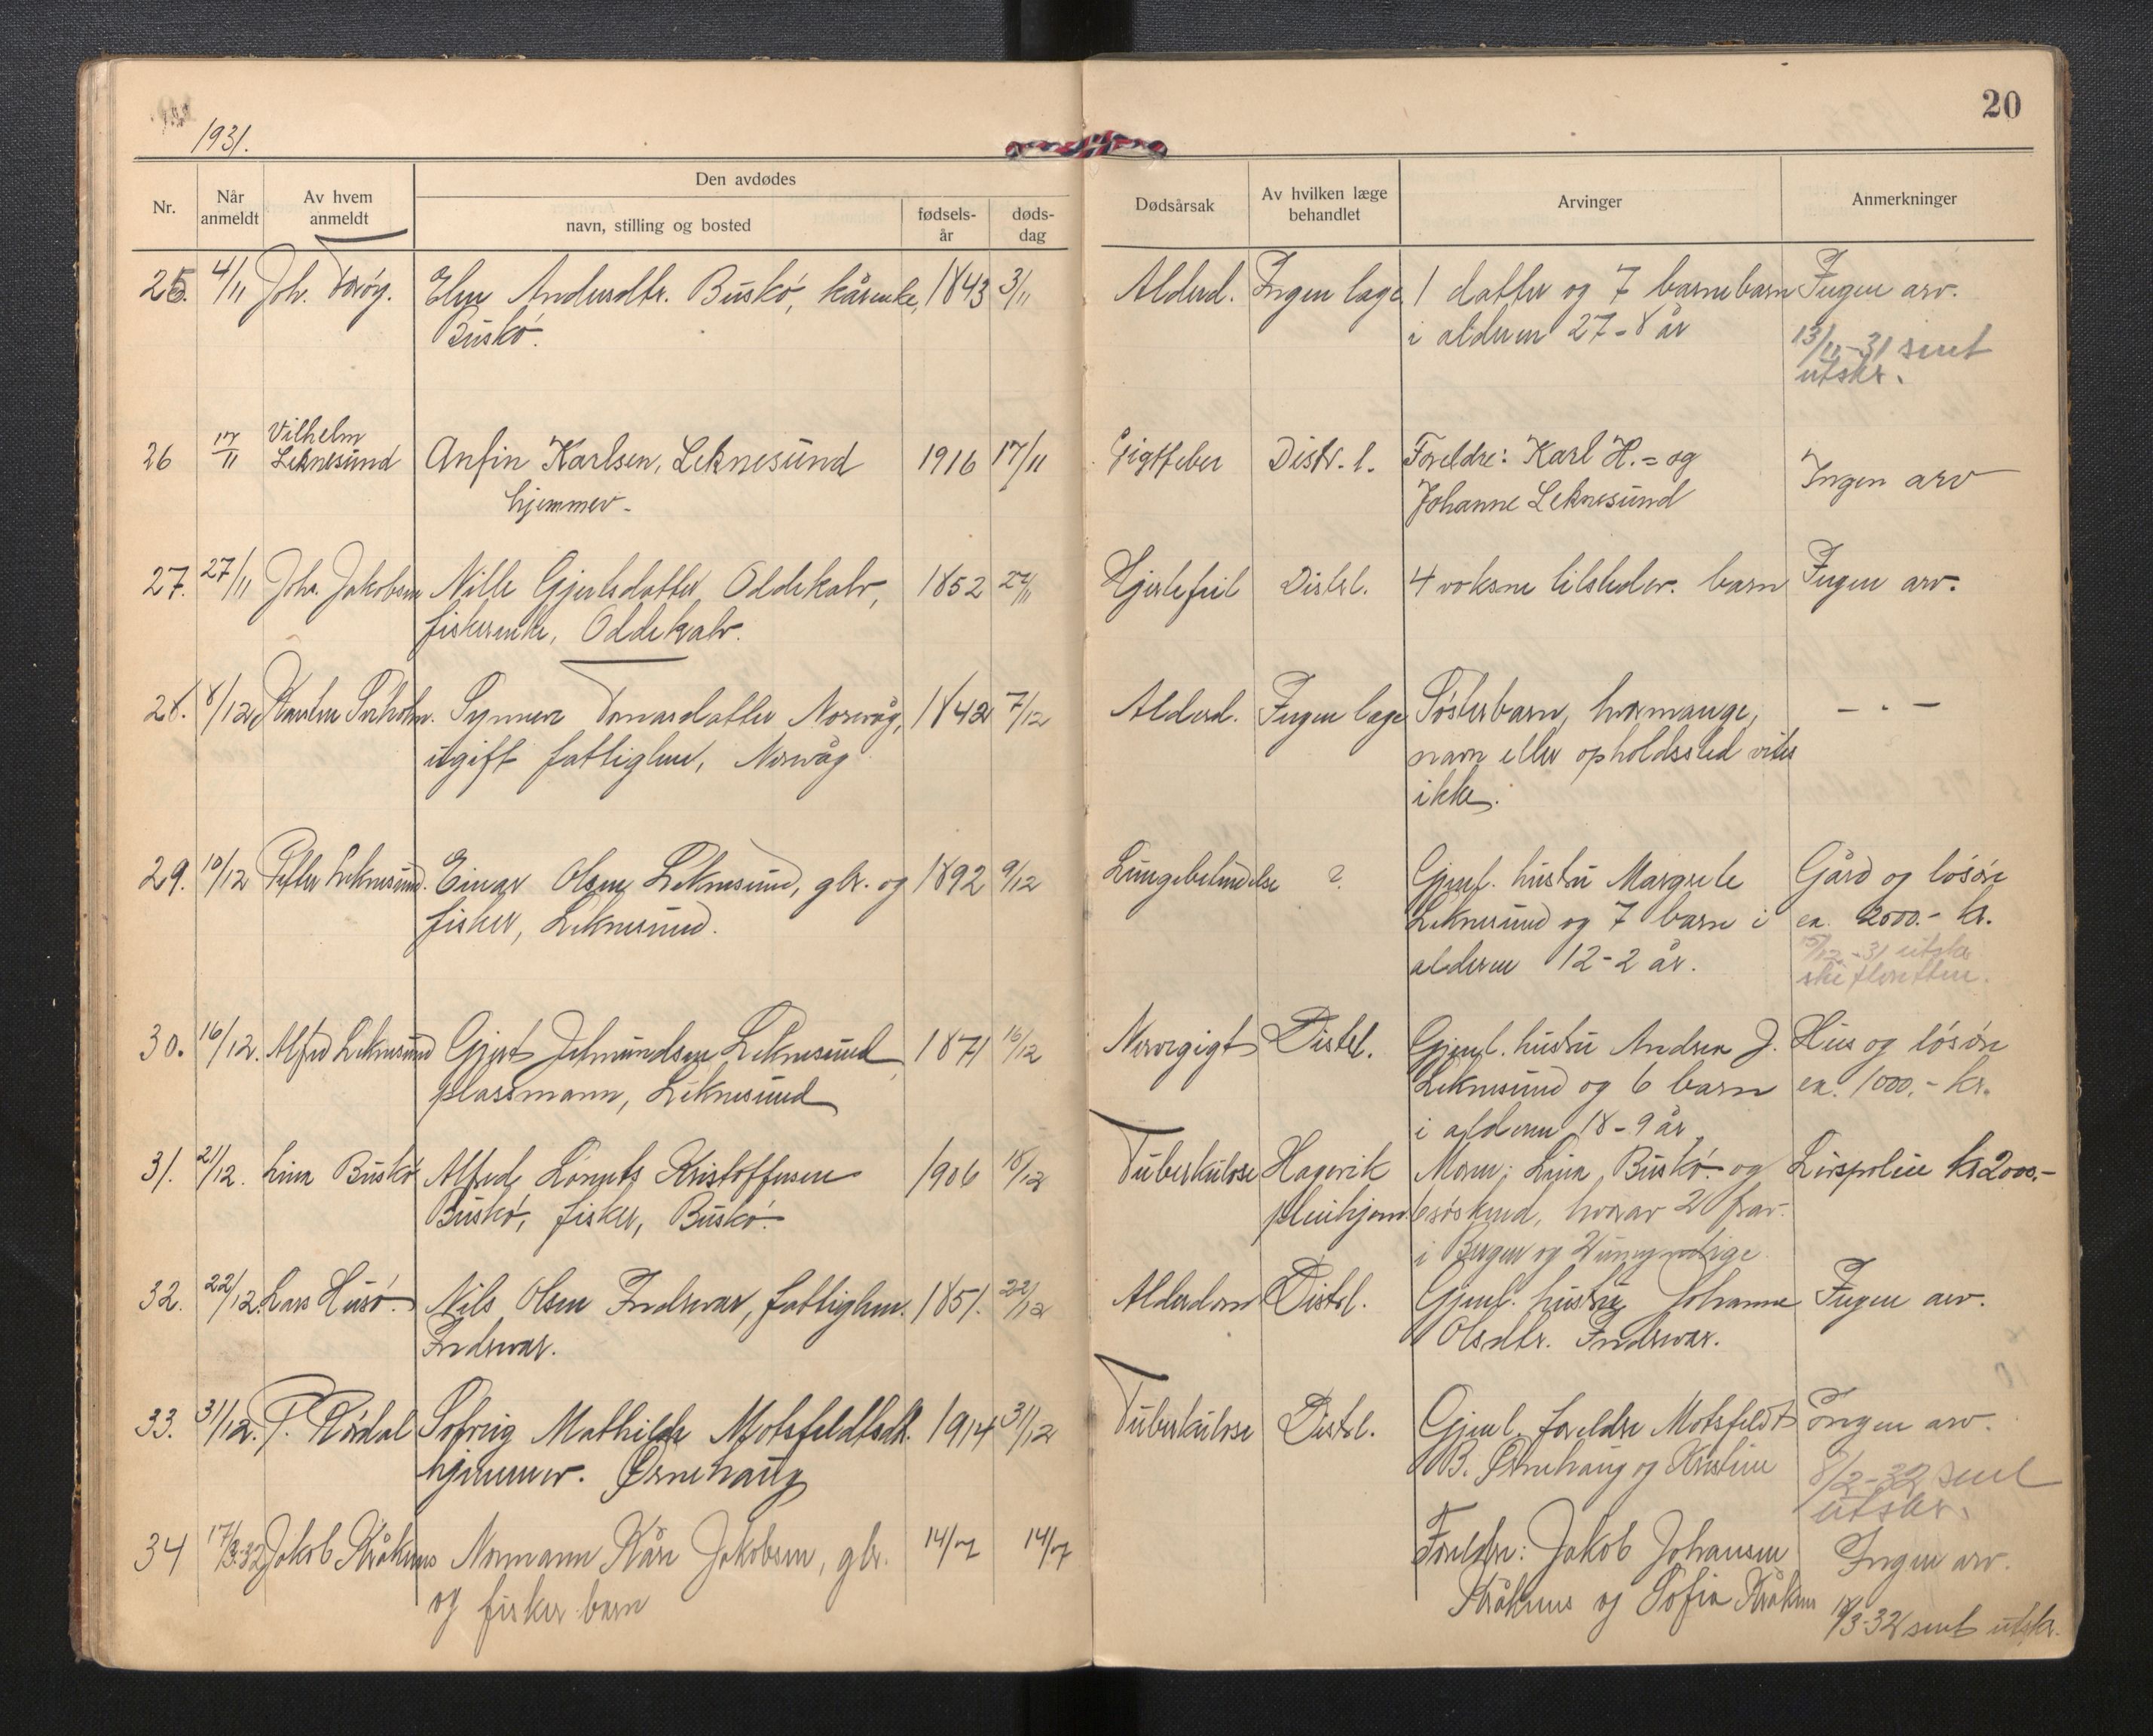 1931.
20
Nr.
Når anmeldt
Av hvem anmeldt
Den avdødes
navn, stilling og bosted
fødselsår
dødsdag
Dødsårsak
Av hvilken læge behandlet
Arvinger
Anmerkninger
25. 4/11 Joh. 1843 3/11 Alderd. Ingen læge 1 datter og 7 barnebarn Ingen arv.
Andersdtr. Buskø, kårenke,
Buskø.
i alderen 27-8 år
13/11-31 sent
utskr.
26 17/11 Vilhelm
Leknesund Anfin Karlsen, Leknesund 1916 17/11 Gigtfeber Distr.l. Foreldre: Karl H. = og
hjemmev. Johanne Leknesund Ingen arv
27. 27/11 Joh. Jakobsen Nille Gjertsdatter Oddekalv, 1852 27/11 Hjertefeil Distrl. 4 voksne tilstedev. barn Ingen arv.
fiskerenke, Oddekalv.
28. 8/12 Norvåg, 1842 7/12 Alderd. Ingen læge Søsterbarn, hvormange, - " -
ugift fattiglem, Norvåg navn eller opholdssted vites
ikke.
29. 10/12 Petter Leknesund. Einar Olsen Leknesund, gbr. og 1892 9/12 Lungebetendelse ? Gjenl. hustru Margrete Gård og løsøre
fisker, Leknesund. Leknesund og 7 barn i ca. 2000.- kr.
alderen 12-2 år. 15/12-31 utskr
skifteretten.
30. 16/12. Alfred Leknesund Gjert Leknesund 1871 16/12 Nervegigt Distrl. Gjenl. hustru Andrea J. Hus og løsøre
plassmann, Leknesund Leknesund og 6 barn ca. 1000.- kr.
i alderen 18-9 år
31. 21/12. Lina Buskø Alfred Kristoffersen 1906 18/12 Tuberkulose Hagevik Moren: Lina Buskø og Livspolise kr 2000.-
Buskø, fisker, Buskø. pleiehjem 6 søskend, hvorav 2 frav.
i Bergen og 2 umyndige
32. 22/12. Lars Husø. Nils Olsen Indrevær, fattiglem. 1851. 22/12 Alderdom Distrl. Gjenl. hustru Johanne Ingen arv.
Indrevær. Olsdtr. Indrevær.
33. 31/12. P. Rørdal Mathilde Motsfeldtsdtr. 1914 31/12 Tuberkulose Distrl. Gjenl. foreldre Motsfeldt Ingen arv.
hjemmev. Ørnehaug B. Ørnehaug og Kristine 8/2-32 sent
utskr.
34 17/3-32 Jakob Kråknes Normann Kåre Jakobsen, gbr. 14/7 14/7 Foreldre: Jakob Johansen Ingen arv.
og fisker barn Kråknes og Sofia Kråknes 18/3-32 sent utskr.